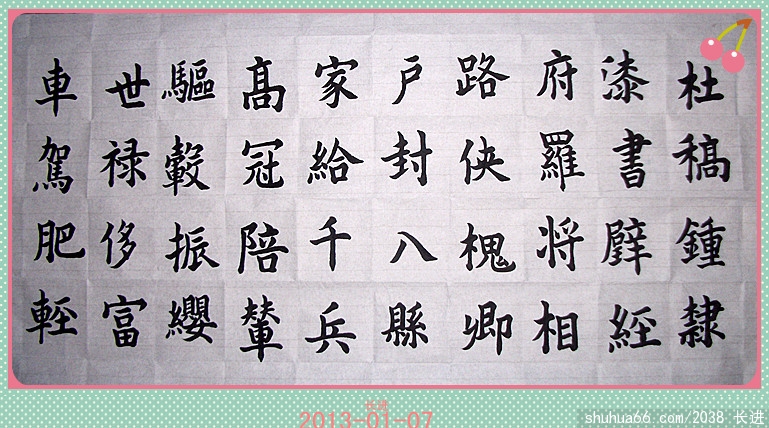 杜稿鍾隸
漆書壁經
府羅将相
路侠槐卿
戶封八縣
家給千兵
髙冠陪輦
驅轂振纓
世禄侈富
車駕肥輕
长进
2013-01-07
shuhua66.com/2038 长进